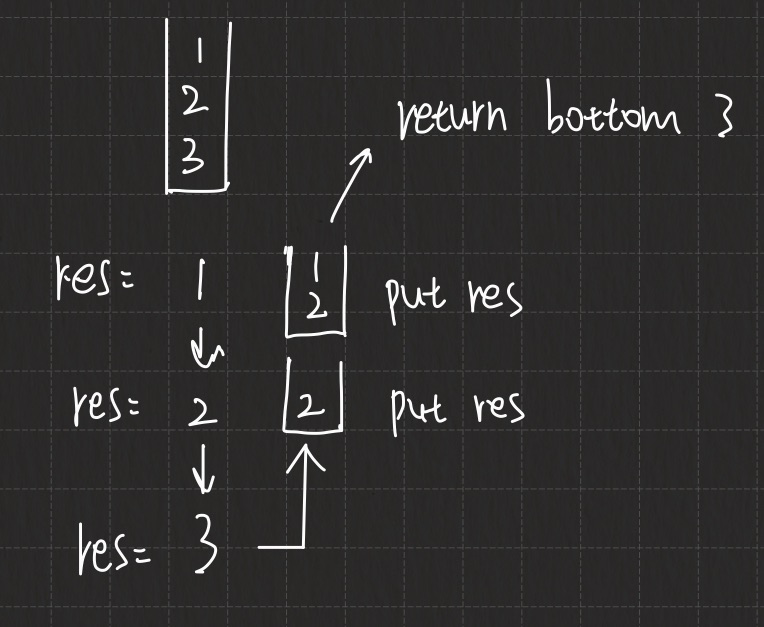 1
2
3
return bottom 3
res= 1
1
2
put res
res= 2
2
put res
res= 3